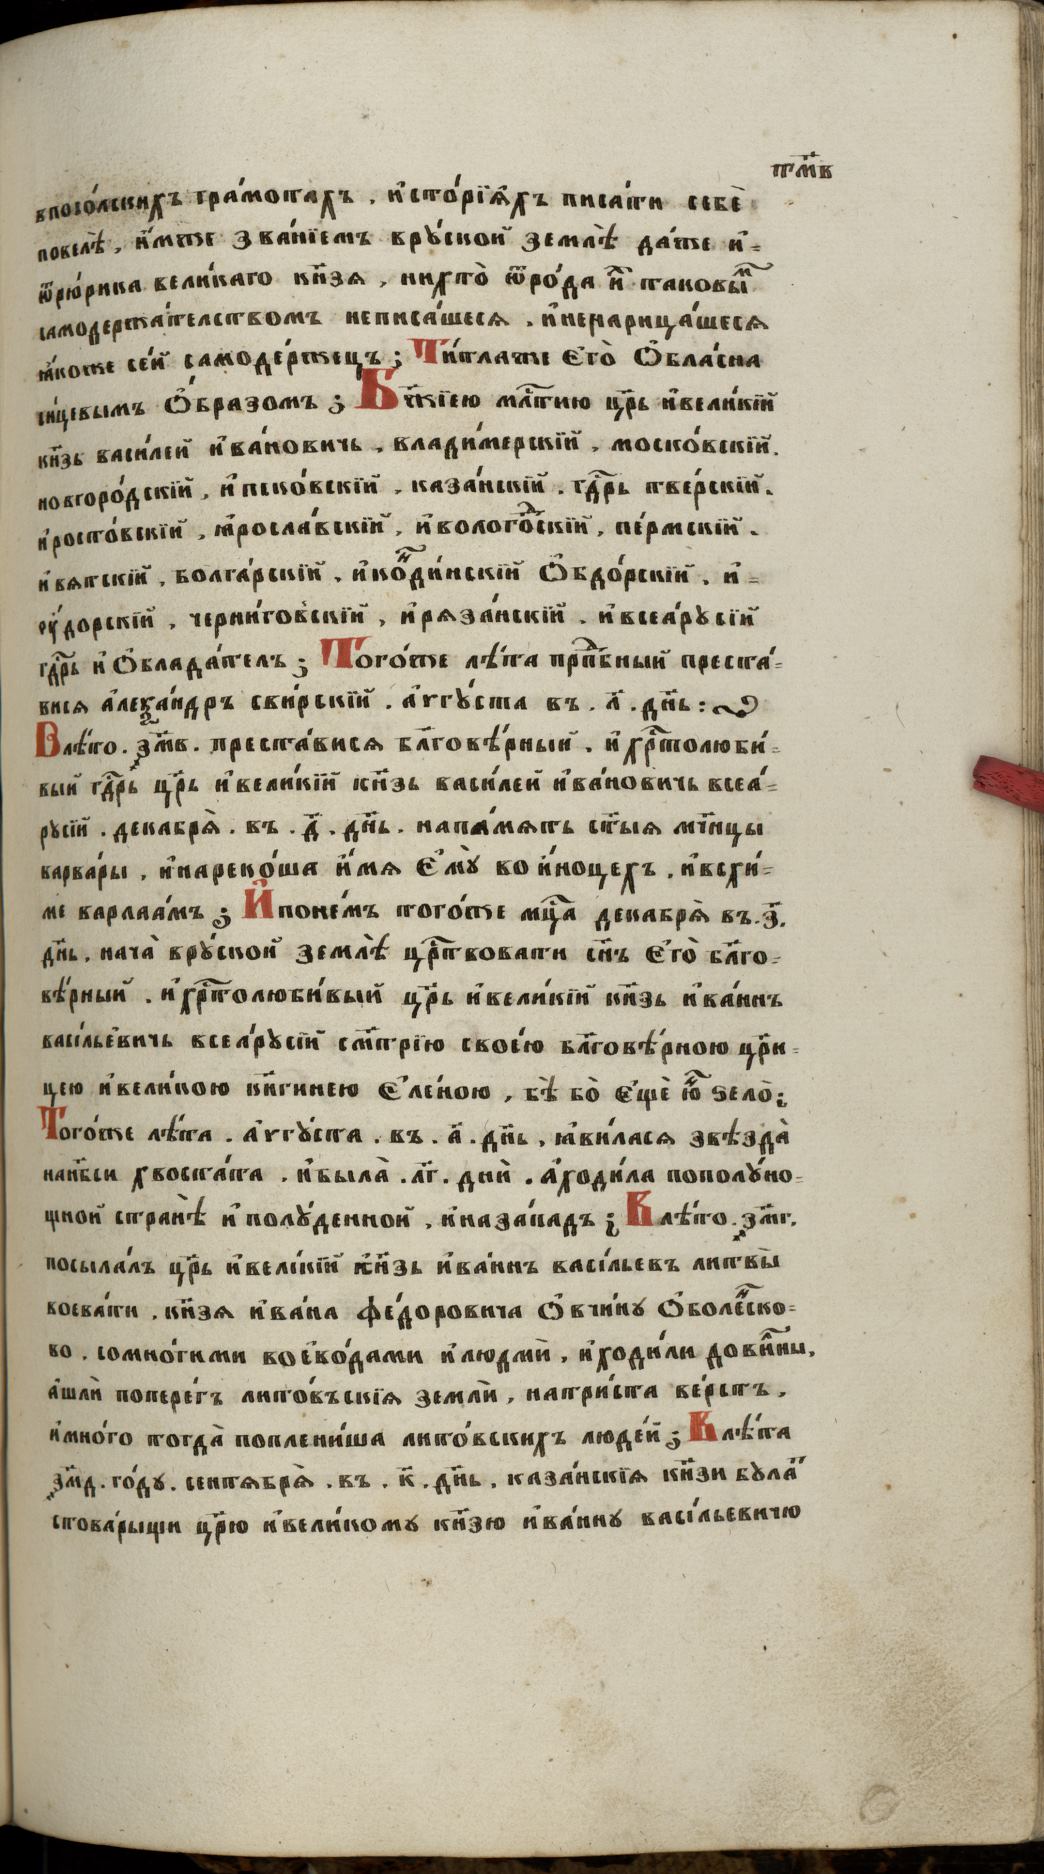 тм҃в
впосо́лскихъ гра́мотахъ , и҆сто́рїѧ҆хъ писа́ти себѐ
повелѣ̀ , и҆́мже зва́нїемъ вру́ской землѣ̀ да́же и҆=
ѿрю́рика вели́каго кн҃зѧ , нихто̀ ѿро́да и҆х̾ таковы́м̾
самодержа́телствомъ неписа́шесѧ , и҆ненарица́шесѧ
ꙗ҆́коже се́й самоде́ржецъ ; Ти́тлаже є҆го̀ ѻ҆бла́сна
си́цевымъ ѻ҆́бразомъ ; Бж҃їею млⷭ҇тию цр҃ь и҆вели́кїй
кн҃зь васи́лей и҆ва́новичь , влади́мерскїй , моско́вскїй .
новгоро́дскїй , и҆пско́вскїй , каза́нскїй . гдⷭ҇рь тве́рскїй .
и҆росто́вскїй , ꙗ҆росла́вскїй , и҆волого́дⷭ҇кїй , пе́рмскїй .
и҆вятскїй , болга́рскїй , и҆конⷣи́нскїй ѻ҆бдо́рскїй , и҆=
ѹ҆до́рскїй , черни́говскїй , и҆рѧза́нскїй . и҆всеа́русїй
гдⷭ҇рь и҆ѻ҆блада́телъ ; Того́же лѣ́та прпⷣбный преста́=
висѧ а҆леѯа́ндръ сви́рскїй . а҆ѵгу́ста въ . л҃ . дн҃ь :
Влѣ́то . ҂зм҃в . преста́висѧ бл҃говѣ́рный , и҆хрⷭ҇толюби́=
вый гдⷭ҇рь цр҃ь и҆вели́кїй кн҃зь васи́лей и҆ва́новичь всеа́=
русїй . декабрѧ̀ . въ . д҃ . дн҃ь . напа́мѧть ст҃ыя мч҃нцы
варва́ры , и҆нареко́ша и҆́мѧ є҆мꙋ̀ во и҆́ноцехъ , и҆всхи́=
ме варлаа́мъ ; И҆поне́мъ того́же мцⷭ҇а декабрѧ̀ въ . з҃ .
дн҃ь , нача̀ вру́ской землѣ̀ црⷭ҇твовати сн҃ъ є҆го̀ бл҃го=
вѣ́рный , и҆хрⷭ҇толюби́вый цр҃ь и҆вели́кїй кн҃зь и҆ва́ннъ
васі́льевичь всеа́русїй см҃трїю свое́ю бл҃говѣ́рною цр҃и=
цею и҆вели́кою кн҃гинею є҆ле́ною , бѣ̀ бо̀ є҆щѐ ю҆́нⷭ҇ ѕело̀ ;
Того́же лѣ́та . а҆ѵгу́ста . въ . а҃ . дн҃ь , ꙗ҆ви́ласѧ звѣзда̀
нанб҃си хвоста́та , и҆была̀ . лг҃ . днѝ . а҆ходи́ла пополу́но=
щной странѣ̀ и҆полу́денной , и҆наза́падъ ; Влѣ́то . ҂зм҃г .
посыла́лъ цр҃ь и҆вели́кїй кн҃зь и҆ва́ннъ васі́льевъ литвы̀
воева́ти , кн҃зѧ и҆ва́на ѳе́доровича ѻ҆вчи́ну ѻ҆боле́нⷭ҇ко=
во , сомно́гими воево́дами и҆людмѝ , и҆ходи́ли дови́лⷩ҇ы ,
а҆шлѝ попере́гъ лито́въскїѧ землѝ , натри́ста ве́рстъ ,
и҆мно́го тогда̀ поплени́ша лито́вскихъ люде́й ; Влѣ́та
҂зм҃д . го́ду . сентѧбрѧ̀ . въ . к҃ . дн҃ь , каза́нскїѧ кн҃зи була́т
стова́рыщи цр҃ю и҆вели́кому кн҃зю и҆ва́нну васі́льевичю